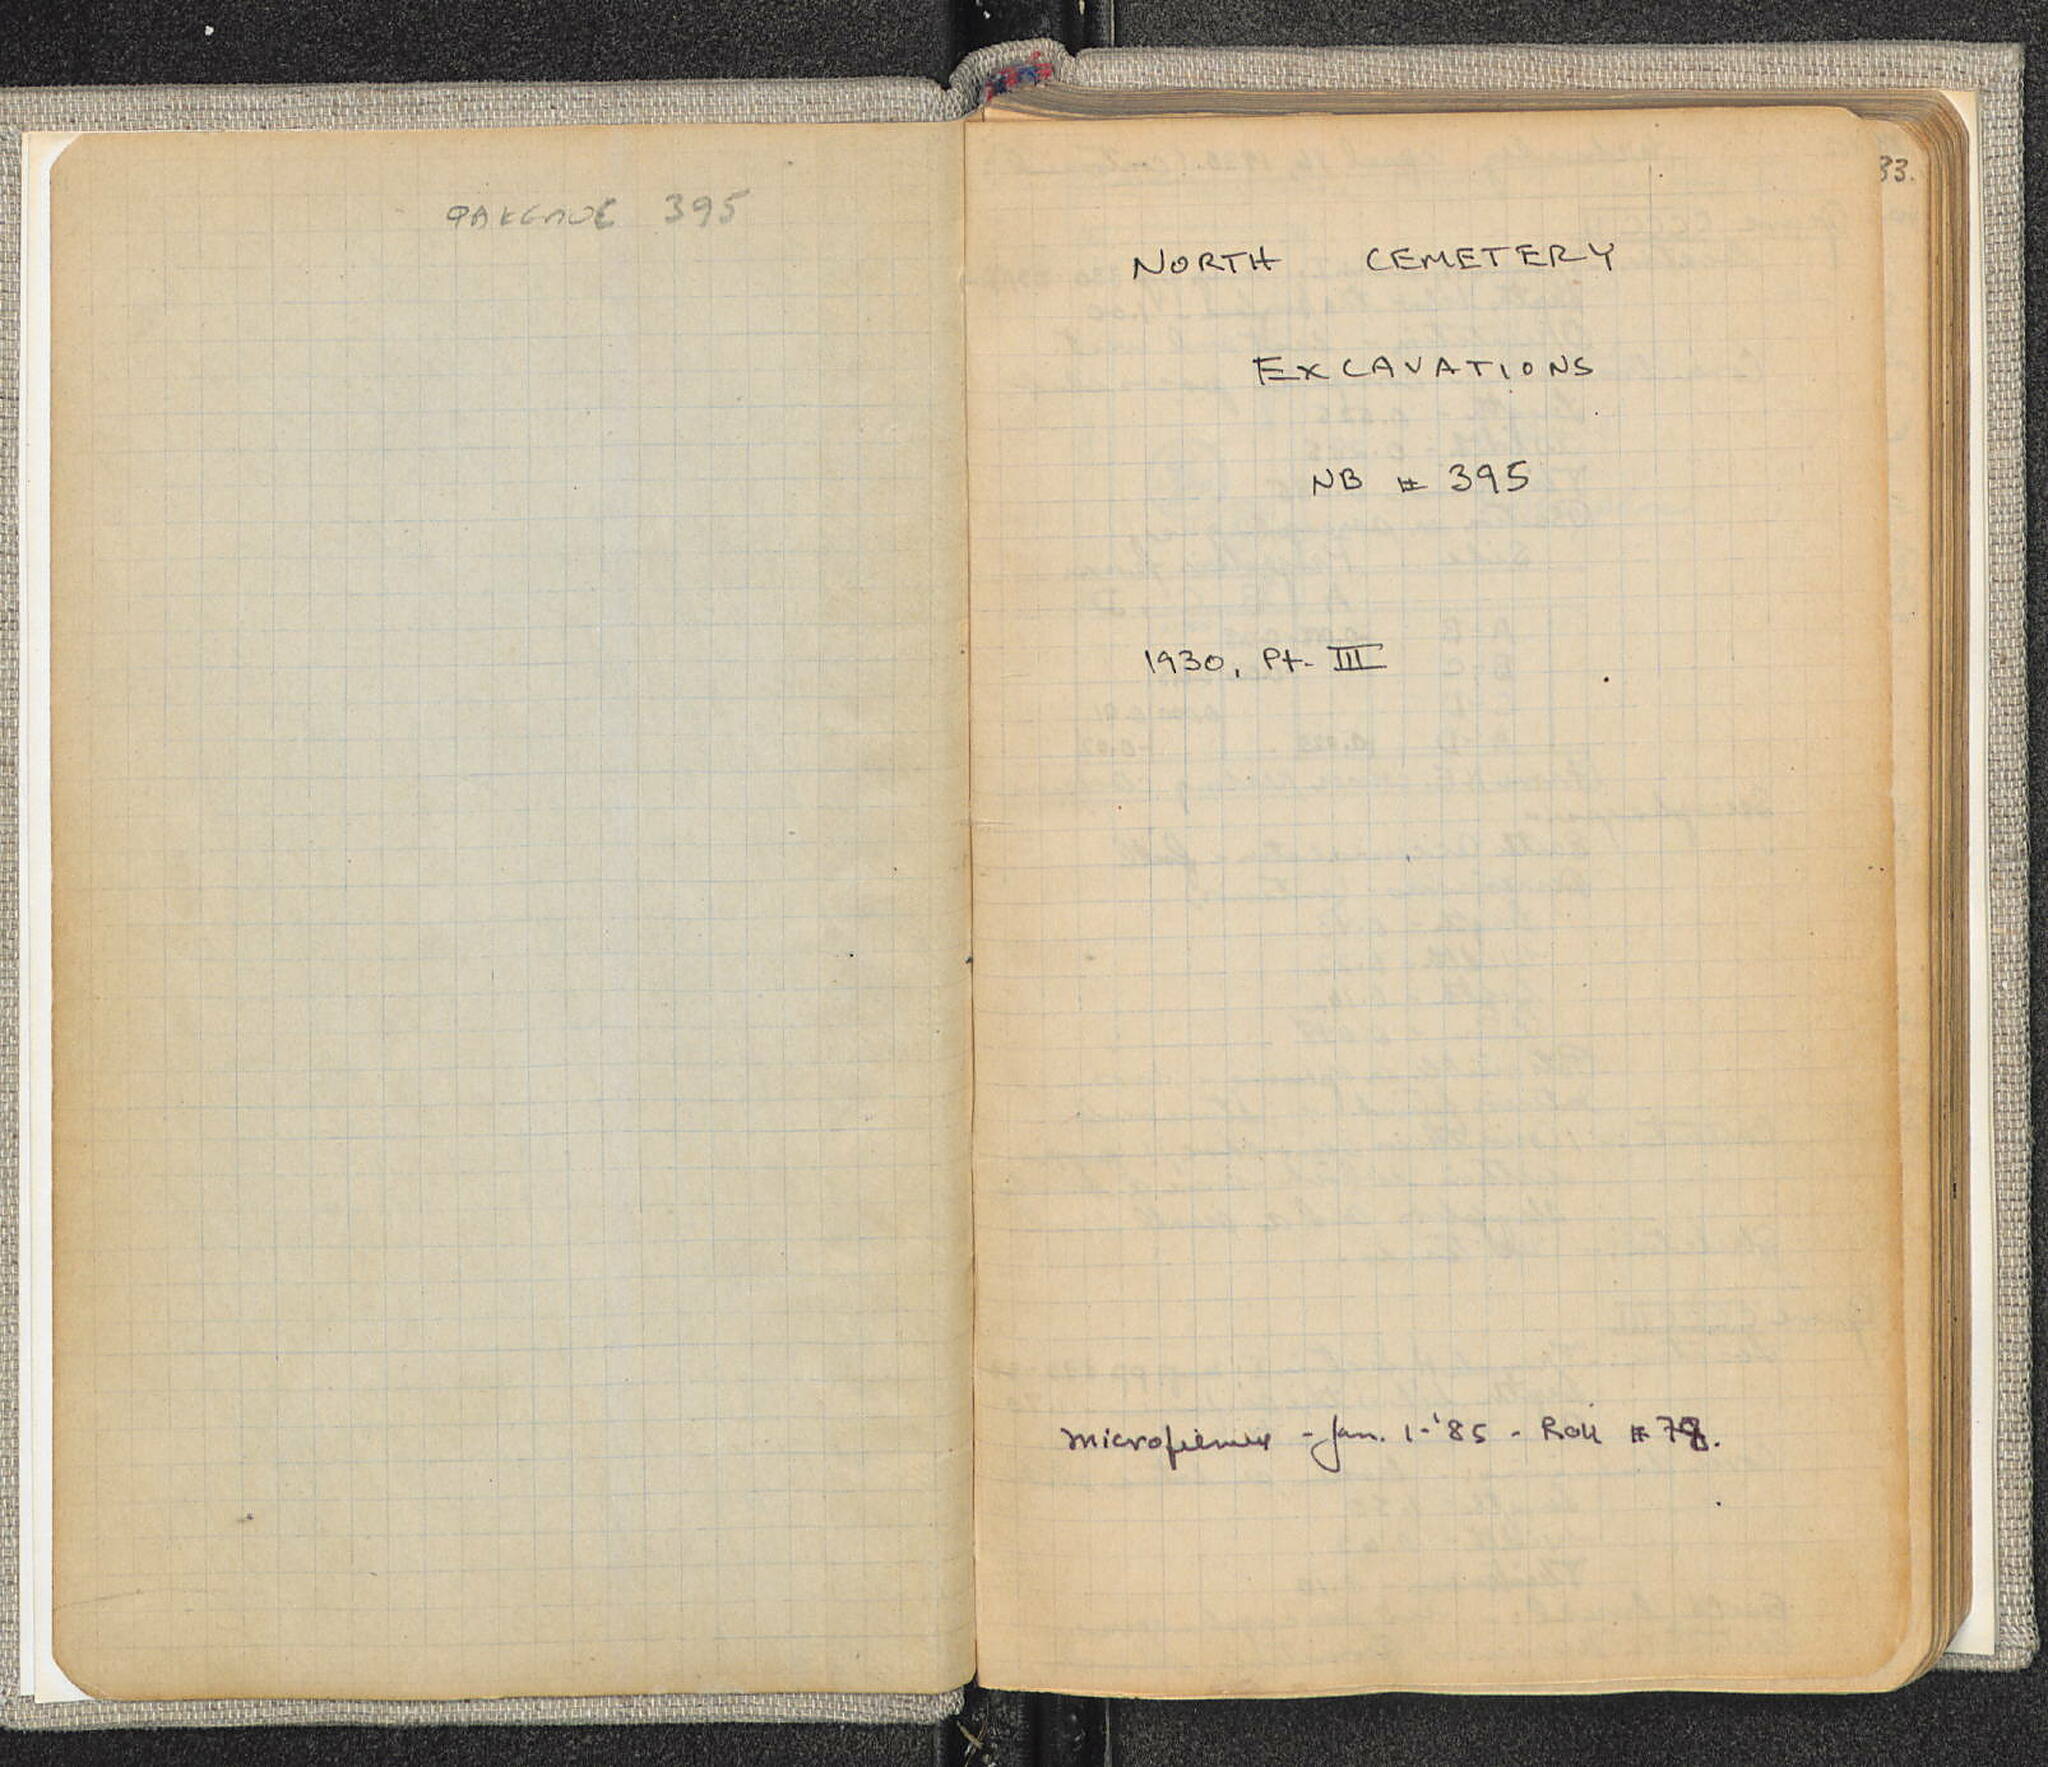 ΦΑΚΕΛΛΟΣ 395
33.
NORTH CEMETERY
EXCAVATIONS
NB # 395
1930, Pt. III
Microfilmed - Jan. 1-'85 - Roll #